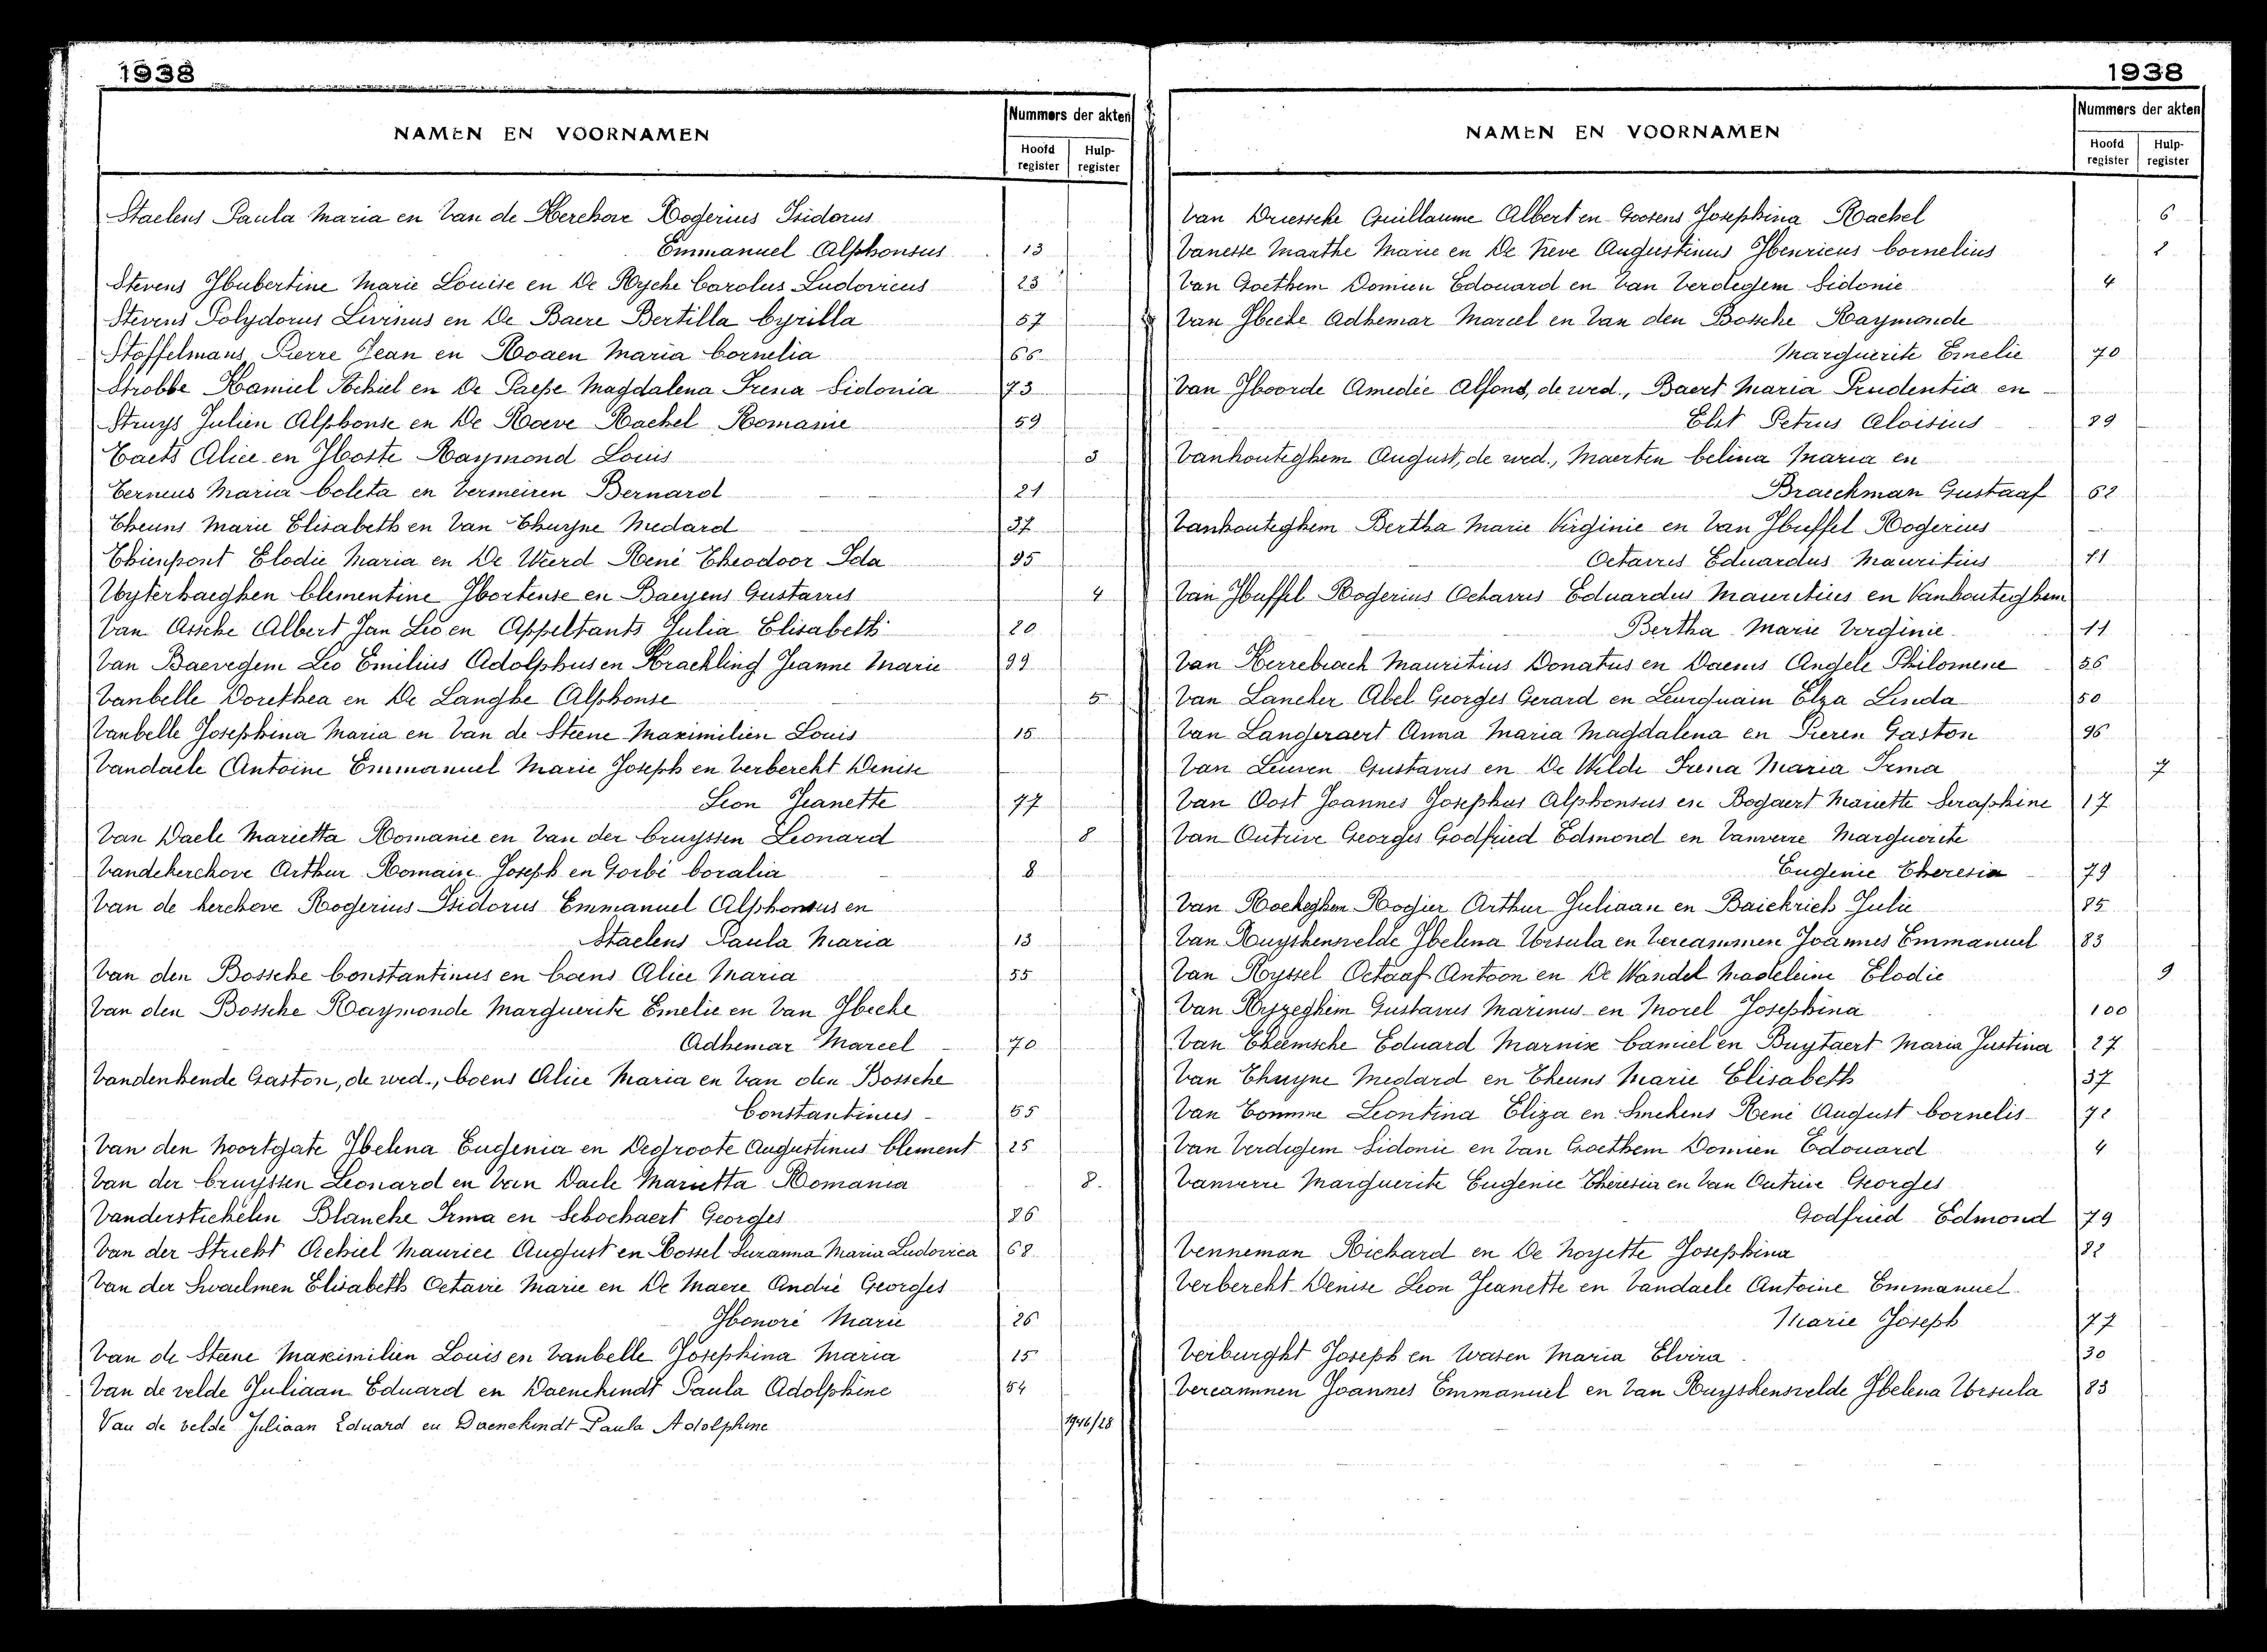 1938
NAMEN EN VOORNAMEN
Nummers der akten
Hoofd register
Hulp-register
Staelens Paula Maria en Van de Kerckove Rogerius Isidorus
Emmanuel Alphonsus 13
Stevens Hubertine Marie Louise en De Rycke Carolus Ludovicus 23
Stevens Polydorus Livinus en De Baere Bertilla Cyrilla 57
Stoffelmans Pierre Jean en Rogen Maria Cornelia 66
Strobbe Kamiel Achiel en De Paepe Magdalena Irena Sidonia 73
Struys Julien Alphonse en De Roeve Rachel Romanie 59
Taets Alice en Hoste Raymond Louis 3
Terneus Maria Coleta en Vermeiren Bernard 21
Theuns Marie Elisabeth en Van Thuyne Medard 37
Thienpont Elodie Maria en De Weerd René Theodoor Ida 95
Uyterhaeghen Clementine Hortense en Baeyens Gustavus 4
Van Assche Albert Jan Leo en Appeltants Julia Elisabeth 20
Van Baevegem Leo Emilius Adolphus en Krachling Jeanne Marie 99
Vanbelle Dorethea en De Langhe Alphonse 5
Vanbelle Josephina Maria en Van de Steene Maximilien Louis 15
Vandaele Antoine Emmanuel Marie Joseph en Verbercht Denise
Leon Jeanette 77
Van Daele Marietta Romanie en Van der Cruyssen Leonard 8
Vandekerckove Arthur Romain Joseph en Gorbé Coralia 8
Van de Kerckove Rogerius Isidorus Emmanuel Alphonsus en
Staelens Paula Maria 13
Van den Bossche Constantinus en Coens Alice Maria 55
Van den Bossche Raymonde Marguerite Emelie en Van Hecke
Adhemar Marcel 70
Vandenhende Gaston, de wed., Coens Alice Maria en Van den Bossche
Constantinus 55
Van den Noortgate Helena Eugenia en Degroote Augustinus Clement 25
Van der Cruyssen Leonard en Van Daele Marietta Romania 8
Vanderstichelen Blanche Irma en Schochaert Georges 86
Van der Stricht Achiel Maurice August en Cossel Suzanna Maria Ludovica 68
Van der Swaelmen Elisabeth Octavie Marie en De Maere André Georges
Honoré Marie 26
Van de Steene Maximilien Louis en Vanbelle Josephina Maria 15
Van de velde Juliaan Eduard en Daenekindt Paula Adolphine 54
Van de velde Juliaan Eduard en Daenekindt Paula Adolphine 1946/28
1938
NAMEN EN VOORNAMEN
Nummers der akten
Hoofd register
Hulp-register
Van Driessche Guillaume Albert en Goosens Josephina Rachel 6
Vanesse Marthe Marie en De Neve Augustinus Henricus Cornelius 2
Van Goethem Domien Edouard en Van Verdegem Sidonie 4
Van Hecke Adhemar Marcel en Van den Bossche Raymonde
Marguerite Emelie 70
Van Hoorde Amedée Alfons, de wed., Baert Maria Prudentia en
Elst Petrus Aloisius 89
Vanhouteghem August, de wed., Maerten Celina Maria en
Braeckman Gustaaf 62
Vanhouteghem Bertha Marie Virginie en Van Huffel Rogerius
Octavus Eduardus Mauritius 11
Van Huffel Rogerius Octavus Eduardus Mauritius en Vanhouteghem
Bertha Marie Virginie 11
Van Kerrebroeck Mauritius Donatus en Daems Angele Philomene 56
Van Lancker Abel Georges Gerard en Leurquain Elza Linda 50
Van Langeraert Anna Maria Magdalena en Pieren Gaston 96
Van Leuven Gustavus en De Wilde Irena Maria Irma 7
Van Oost Joannes Josephus Alphonsus en Bogaert Mariette Seraphine 17
Van Outrive Georges Godfried Edmond en Vanverre Marguerite
Eugenie Theresia 79
Van Rockeghem Rogier Arthur Juliaan en Baickrich Julie 85
Van Ruyskensvelde Helena Ursula en Vercammen Joannes Emmanuel 83
Van Ryssel Octaaf Antoon en De Wandel Madeleine Elodie 9
Van Ryzeghem Gustavus Marinus en Morel Josephina 100
Van Theemsche Eduard Marnix Camiel en Buytaert Maria Justina 27
Van Thuyne Medard en Theuns Marie Elisabeth 37
Van Tomme Leontina Eliza en Smekens René August Cornelis 72
Van Verdegem Sidonie en Van Goethem Domien Edouard 4
Vanverre Marguerite Eugenie Theresia en Van Outrive Georges
Godfried Edmond 79
Venneman Richard en De Noyette Josephina 82
Verbercht Denise Leon Jeanette en Vandaele Antoine Emmanuel
Marie Joseph 77
Verburght Joseph en Wasen Maria Elvira 30
Vercammen Joannes Emmanuel en Van Ruyskensvelde Helena Ursula 83